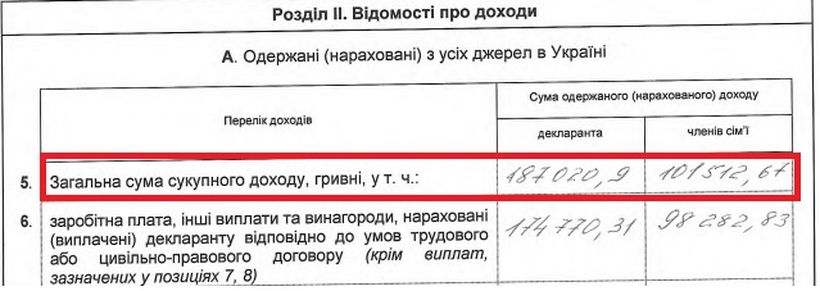 Розділ II. Відомості про доходи
А. Одержані (нараховані) з усіх джерел в Україні
Перелік доходів
Сума одержаного (нарахованого) доходу
декларанта
членів сім'ї
5. Загальна сума сукупного доходу, гривні, у т. ч.: 187020,9 101512,67
6. заробітна плата, інші виплати та винагороди, нараховані 174770,31 98282,83
(виплачені) декларанту відповідно до умов трудового
або цивільно-правового договору (крім виплат,
зазначених у позиціях 7, 8)